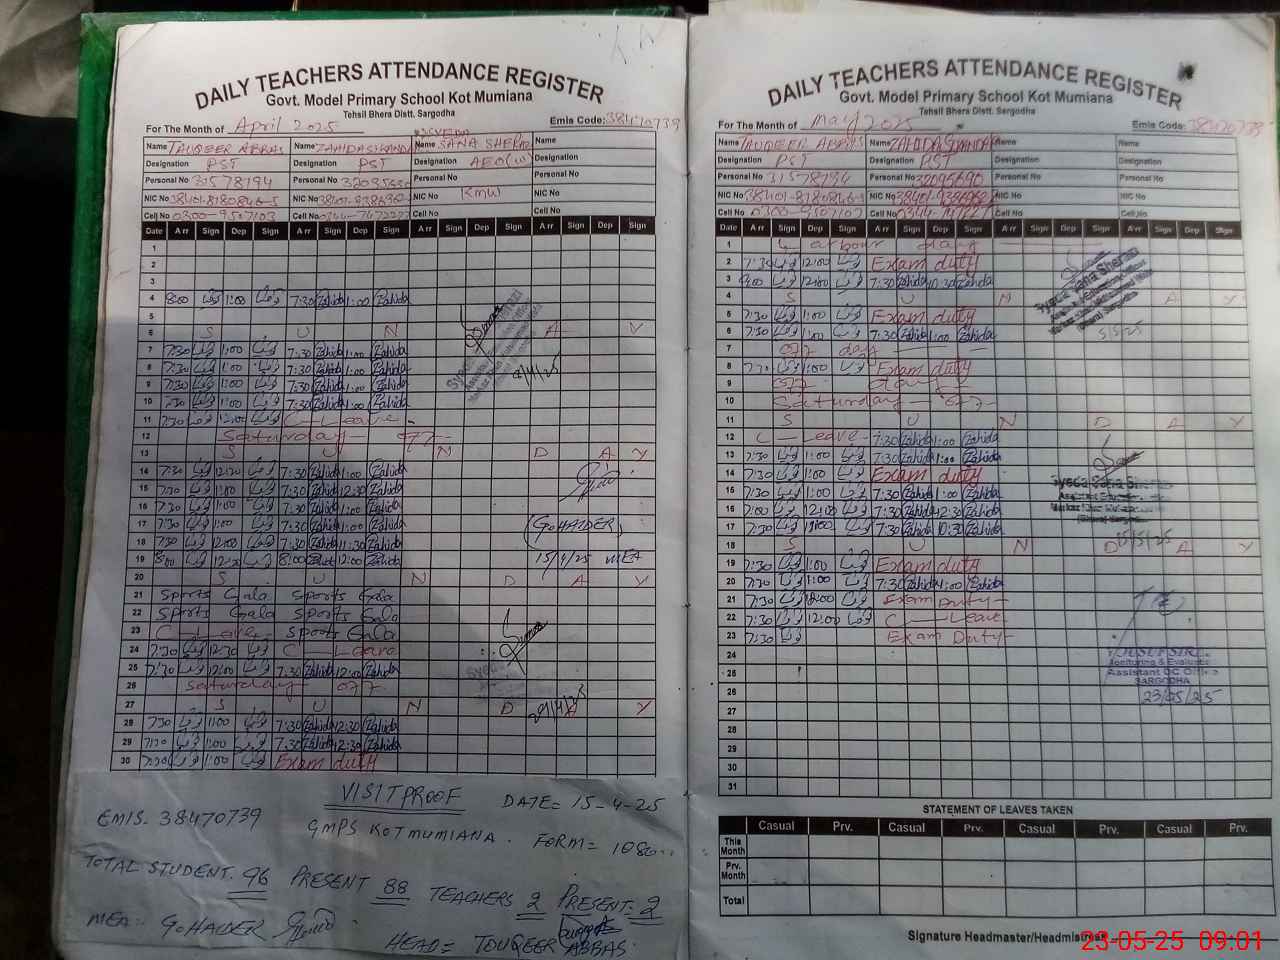 DAILY TEACHERS ATTENDANCE REGISTER
Govt. Model Primary School Kot Mumiana
Tehsil Bhera Distt. Sargodha
For The Month of April 2025 Emis Code: 38470739
Name TAUQEER ABBAS Name Name SANA SHERAZ Name
Designation PST Designation PST Designation AEO (W) Designation
Personal No 31578194 Personal No Personal No Personal No
NIC No NIC No NIC No KMW NIC No
Cell No 0300-9507103 Cell No Cell No Cell No
Date Arr Sign Dep Sign Arr Sign Dep Sign Arr Sign Dep Sign Arr Sign Dep Sign
1
2
3
4 8:00 1:00 7:30 Zahida 1:00 Zahida
5
6 S U N A Y
7 7:30 1:00 7:30 Zahida 1:00 Zahida
8 7:30 1:00 7:30 Zahida 1:00 Zahida
9 7:30 1:00 7:30 Zahida 1:00 Zahida
10 7:30 1:00 7:30 Zahida 1:00 Zahida
11 7:30 12:00 C-Leave-
12 Saturday- off-
13 S U N D A Y
14 7:30 12:30 7:30 Zahida 1:00 Zahida
15 7:30 1:00 7:30 Zahida 12:30 Zahida
16 7:30 1:00 7:30 Zahida 1:00 Zahida
17 7:30 1:00 7:30 Zahida 1:00 Zahida (GoHALDER)
18 7:30 12:00 7:30 Zahida 11:30 Zahida
19 8:00 12:30 8:00 Zahida 12:00 Zahida 15/4/25 MEA
20 S U N D A Y
21 Sports Gala Sports Gala
22 Sports Gala Sports Gala
23 C-Leave- Sports Gala
24 7:30 12:30 C-Leave
25 7:30 12:00 7:30 Zahida 12:00 Zahida
26 Saturday- off
27 S U N D A Y
29/4/25
28 7:30 1:00 7:30 Zahida 12:30 Zahida
29 7:30 1:00 7:30 Zahida 12:30 Zahida
30 7:30 1:00 Exam duty
VISIT PROOF DATE= 15-4-25
EMIS. 38470739 GMPS KOTMUMIANA. FORM= 1080
TOTAL STUDENT. 96 PRESENT 88 TEACHERS 2 PRESENT. 2
MEA:- GoHALDER
HEAD= TOUQEER ABBAS
DAILY TEACHERS ATTENDANCE REGISTER
Govt. Model Primary School Kot Mumiana
Tehsil Bhera Distt. Sargodha
For The Month of May 2025 Emis Code: 38470739
Name TAUQEER ABBAS Name Name
Designation PST PST Designation Designation
Personal No 31578194 32095690 Personal No Personal No
NIC No NIC No NIC No
Cell No 0300-9507103 Cell No Cell No
Date Arr Sign Dep Sign Arr Sign Dep Sign Arr Sign Dep Sign Arr Sign Dep Sign
1 Labour day
2 7:30 12:00 Exam duty
3 8:00 12:00 7:30 Zahida 10:30 Zahida
4 S U N A Y
5 7:30 1:00 Exam duty
6 7:30 1:00 7:30 Zahida 1:00 Zahida
5/5/25
7 off day
8 7:30 1:00 Exam duty
9 off day
10 Saturday- off-
11 S U N D A Y
12 C-Leave- 7:30 Zahida 1:00 Zahida
13 7:30 1:00 7:30 Zahida 1:00 Zahida
14 7:30 1:00 Exam duty
15 7:30 1:00 7:30 Zahida 1:00 Zahida
16 12:00 7:30 Zahida 12:30 Zahida
17 7:30 7:30 Zahida 10:30 Zahida
15/5/25
18 S U N D A Y
19 7:30 1:00 Exam duty
20 7:30 1:00 7:30 Zahida 1:00 Zahida
21 7:30 Exam Duty-
22 7:30 12:00 C-Leave
23 7:30 Exam Duty-
24
25
26
27
28
29
30
31
Monitoring & Evaluation
Assistant DC Office
SARGODHA
23/05/25
STATEMENT OF LEAVES TAKEN
Casual Prv. Casual Prv. Casual Prv. Casual Prv.
This Month
Prv. Month
Total
Signature Headmaster/Headmistress
23-05-25 09:01